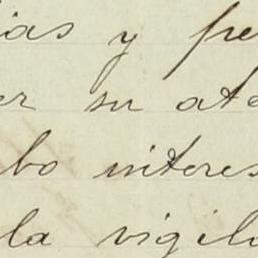 ias y pe
er su ate
bo interes
la vigila